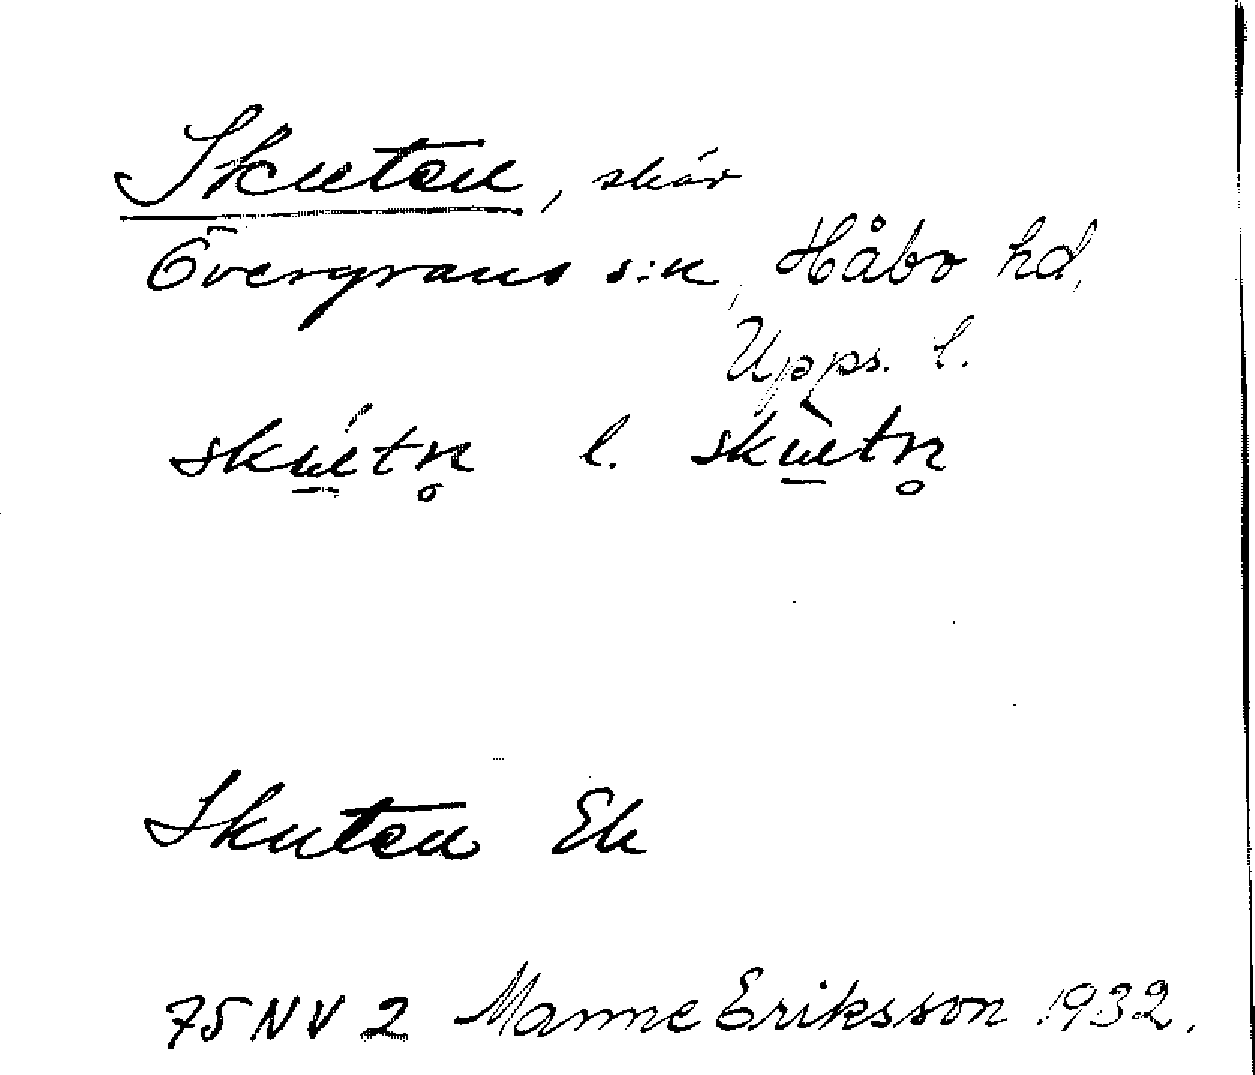 Skuten, skär
Övergrans s:n, Håbo hd,
Upps. l.
skútn̥ l. skùtn̥
Skuten Ek
75 NV 2 Manne Eriksson 1932.